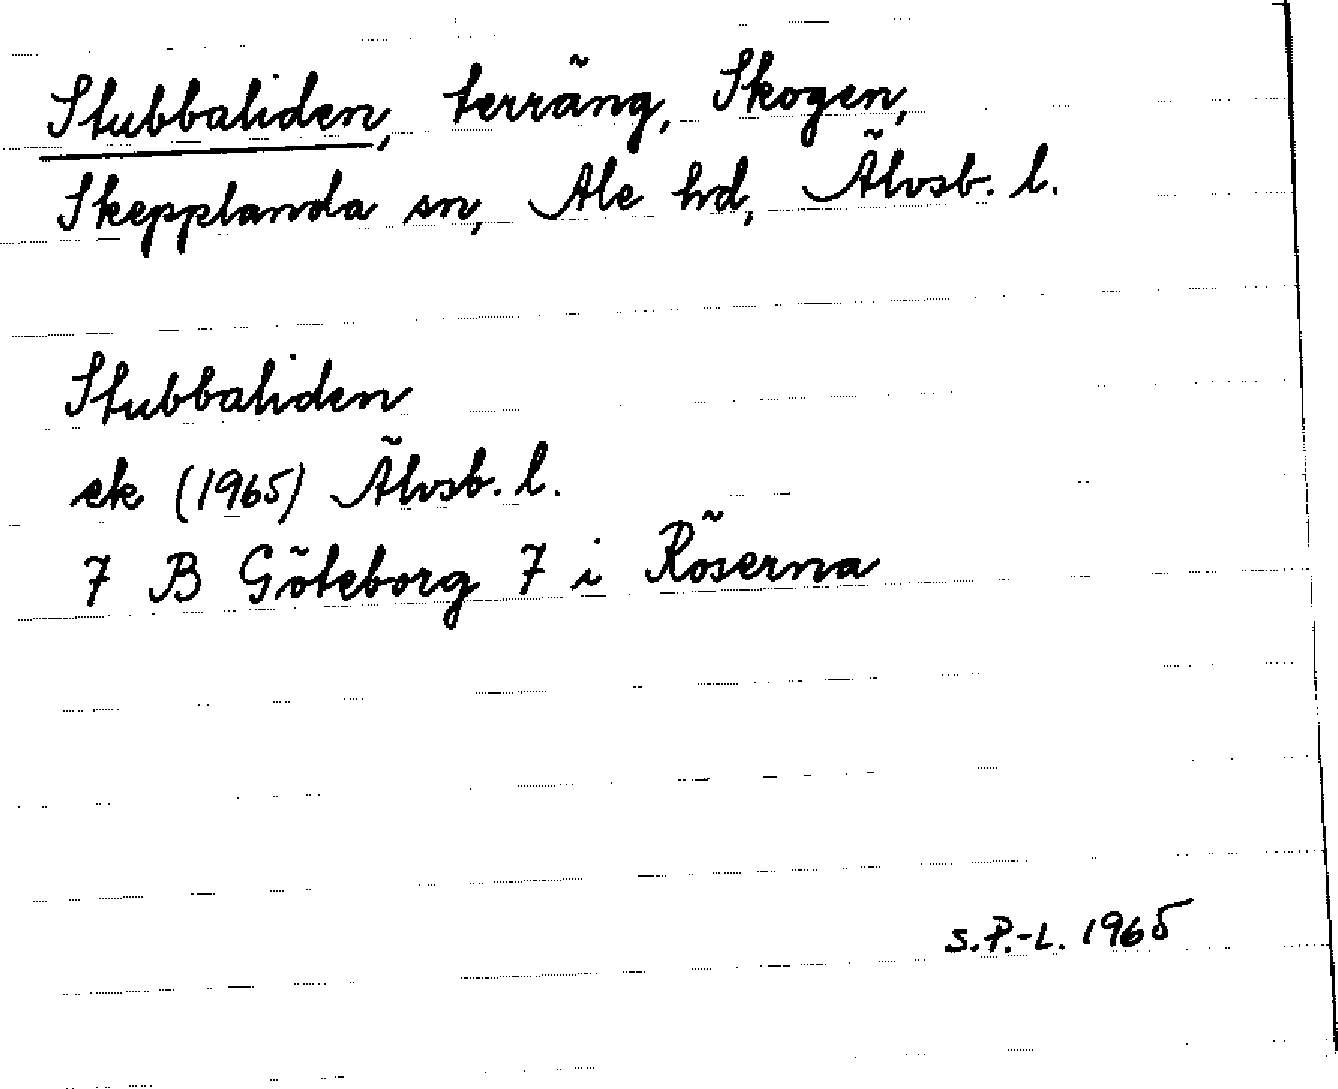 Stubbaliden, terräng, Skogen,
Skepplanda sn, Ale hd, Älvsb. l.
Stubbaliden
ek (1965) Älvsb. l.
7 B Göteborg 7 i Röserna
S.P.-L. 1965